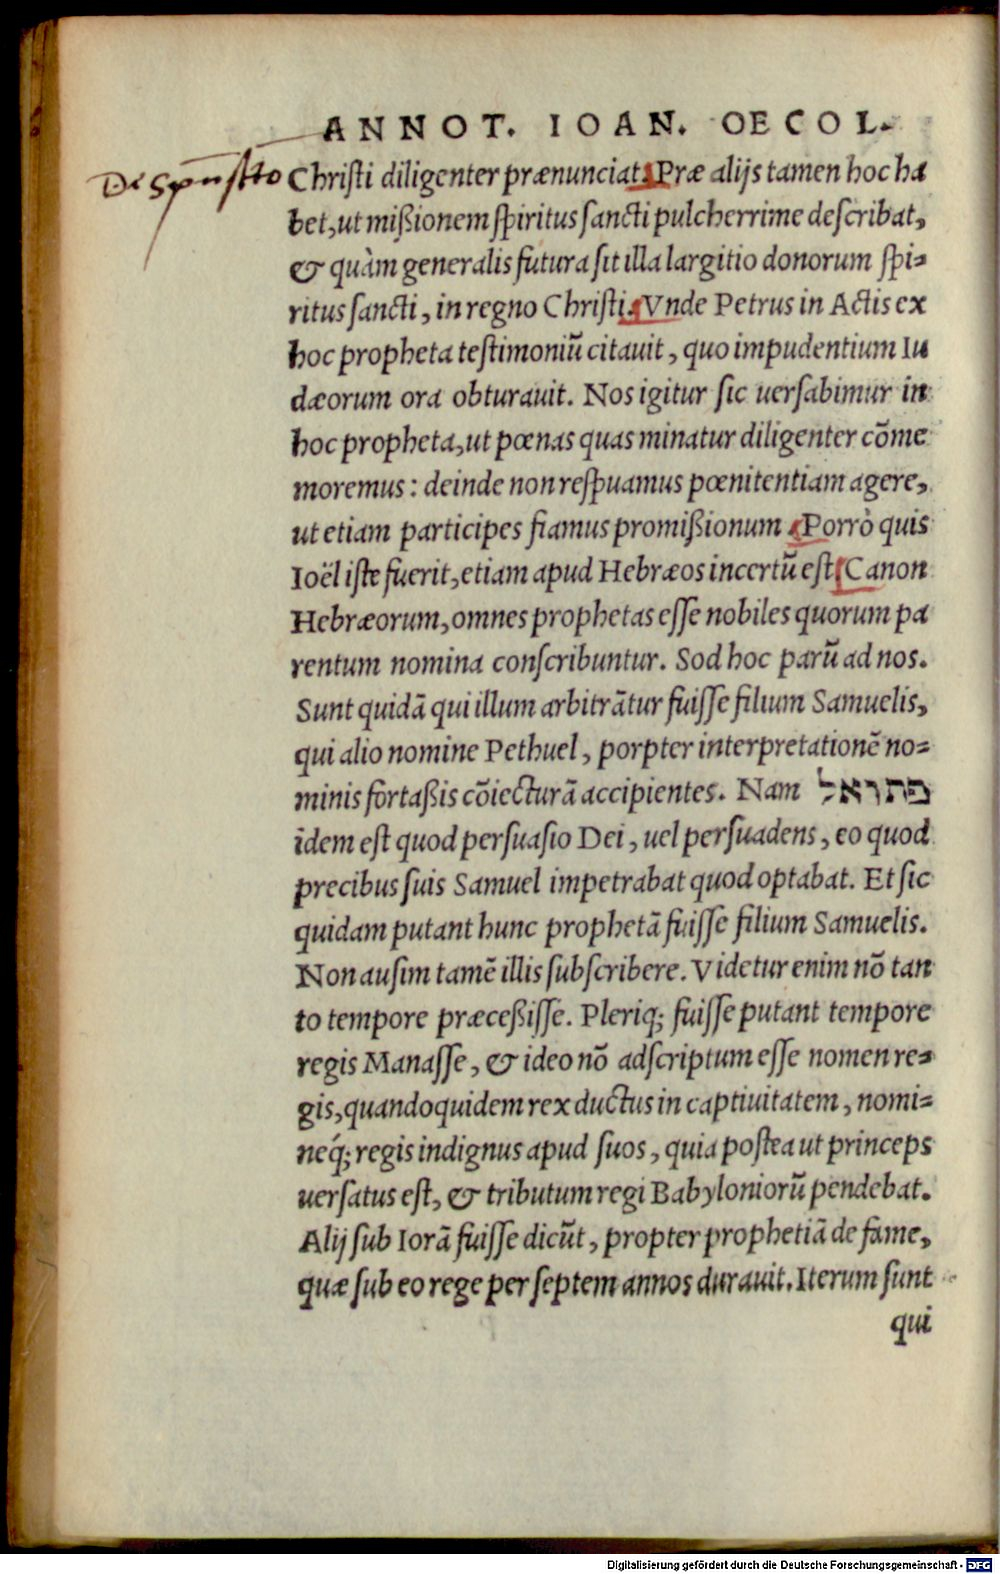 ANNOT. IOAN. OECOL.
Christi diligenter prænunciat. Præ alijs tamen hoc ha
bet, ut mißionem spiritus sancti pulcherrime describat,
& quàm generalis futura sit illa largitio donorum spi=
ritus sancti, in regno Christi. Vnde Petrus in Actis ex
hoc propheta testimoniũ citauit, quo impudentium Iu
dæorum ora obturauit. Nos igitur sic uersabimur in
hoc propheta, ut pœnas quas minatur diligenter cõme
moremus: deinde non respuamus pœnitentiam agere,
ut etiam participes fiamus promißionum. Porrò quis
Ioël iste fuerit, etiam apud Hebræos incertũ est. Canon
Hebræorum, omnes prophetas esse nobiles quorum pa
rentum nomina conscribuntur. Sod hoc parũ ad nos.
Sunt quidã qui illum arbitrãtur fuisse filium Samuelis,
qui alio nomine Pethuel, porpter interpretationẽ no=
minis fortaßis cõiecturã accipientes. Nam פתואל
idem est quod persuasio Dei, uel persuadens, eo quod
precibus suis Samuel impetrabat quod optabat. Et sic
quidam putant hunc prophetã fuisse filium Samuelis.
Non ausim tamẽ illis subscribere. Videtur enim nõ tan
to tempore præceßisse. Pleriq; fuisse putant tempore
regis Manasse, & ideo nõ adscriptum esse nomen re=
gis, quandoquidem rex ductus in captiuitatem, nomi=
neq́; regis indignus apud suos, quia postea ut princeps
uersatus est, & tributum regi Babyloniorũ pendebat.
Alij sub Iorã fuisse dicũt, propter prophetiã de fame,
quæ sub eo rege per septem annos durauit. Iterum sunt
qui
Digitalisierung gefördert durch die Deutsche Forschungsgemeinschaft - DFG